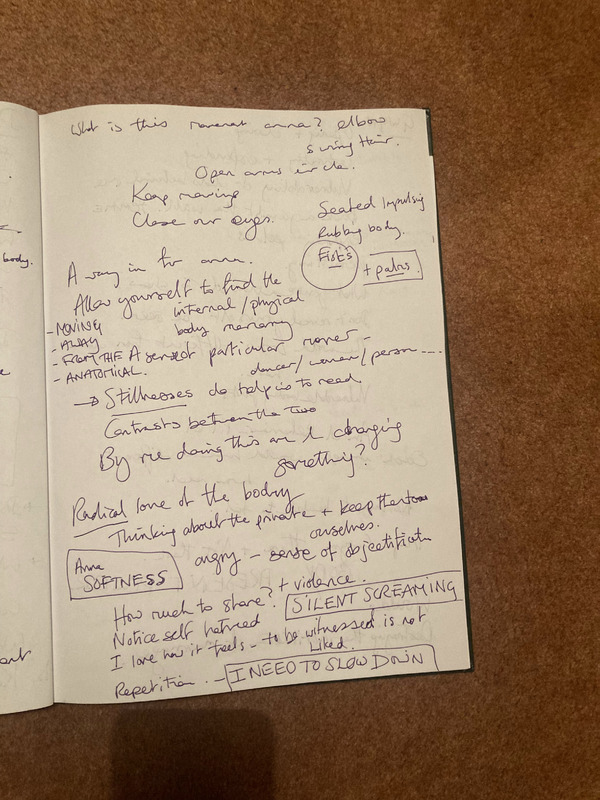 What is this movement anna? elbow
swing Hair.
Open arms circle.
Keep moving
Close our eyes.
Seated Impulsing
Rubbing body.
Fists
+ palms.
body.
A way in for anna.
Allow yourself to find the
internal/physical
body memory
- MOVING
- AWAY
- FROM THE
- ANATOMICAL.
A sense of particular mover -
dancer/woman/person....
→ Stillnesses do help us to read
Contrasts between the two
By me doing this am I changing
something?
Radical love of the body
Thinking about the private + keep them
ourselves.
Anna
SOFTNESS
angry - sense of objectification
+ violence.
How much to share?
SILENT SCREAMING
Notice self hatred
I love how it feels - to be witnessed is not
liked.
Repetition. - I NEED TO SLOW DOWN